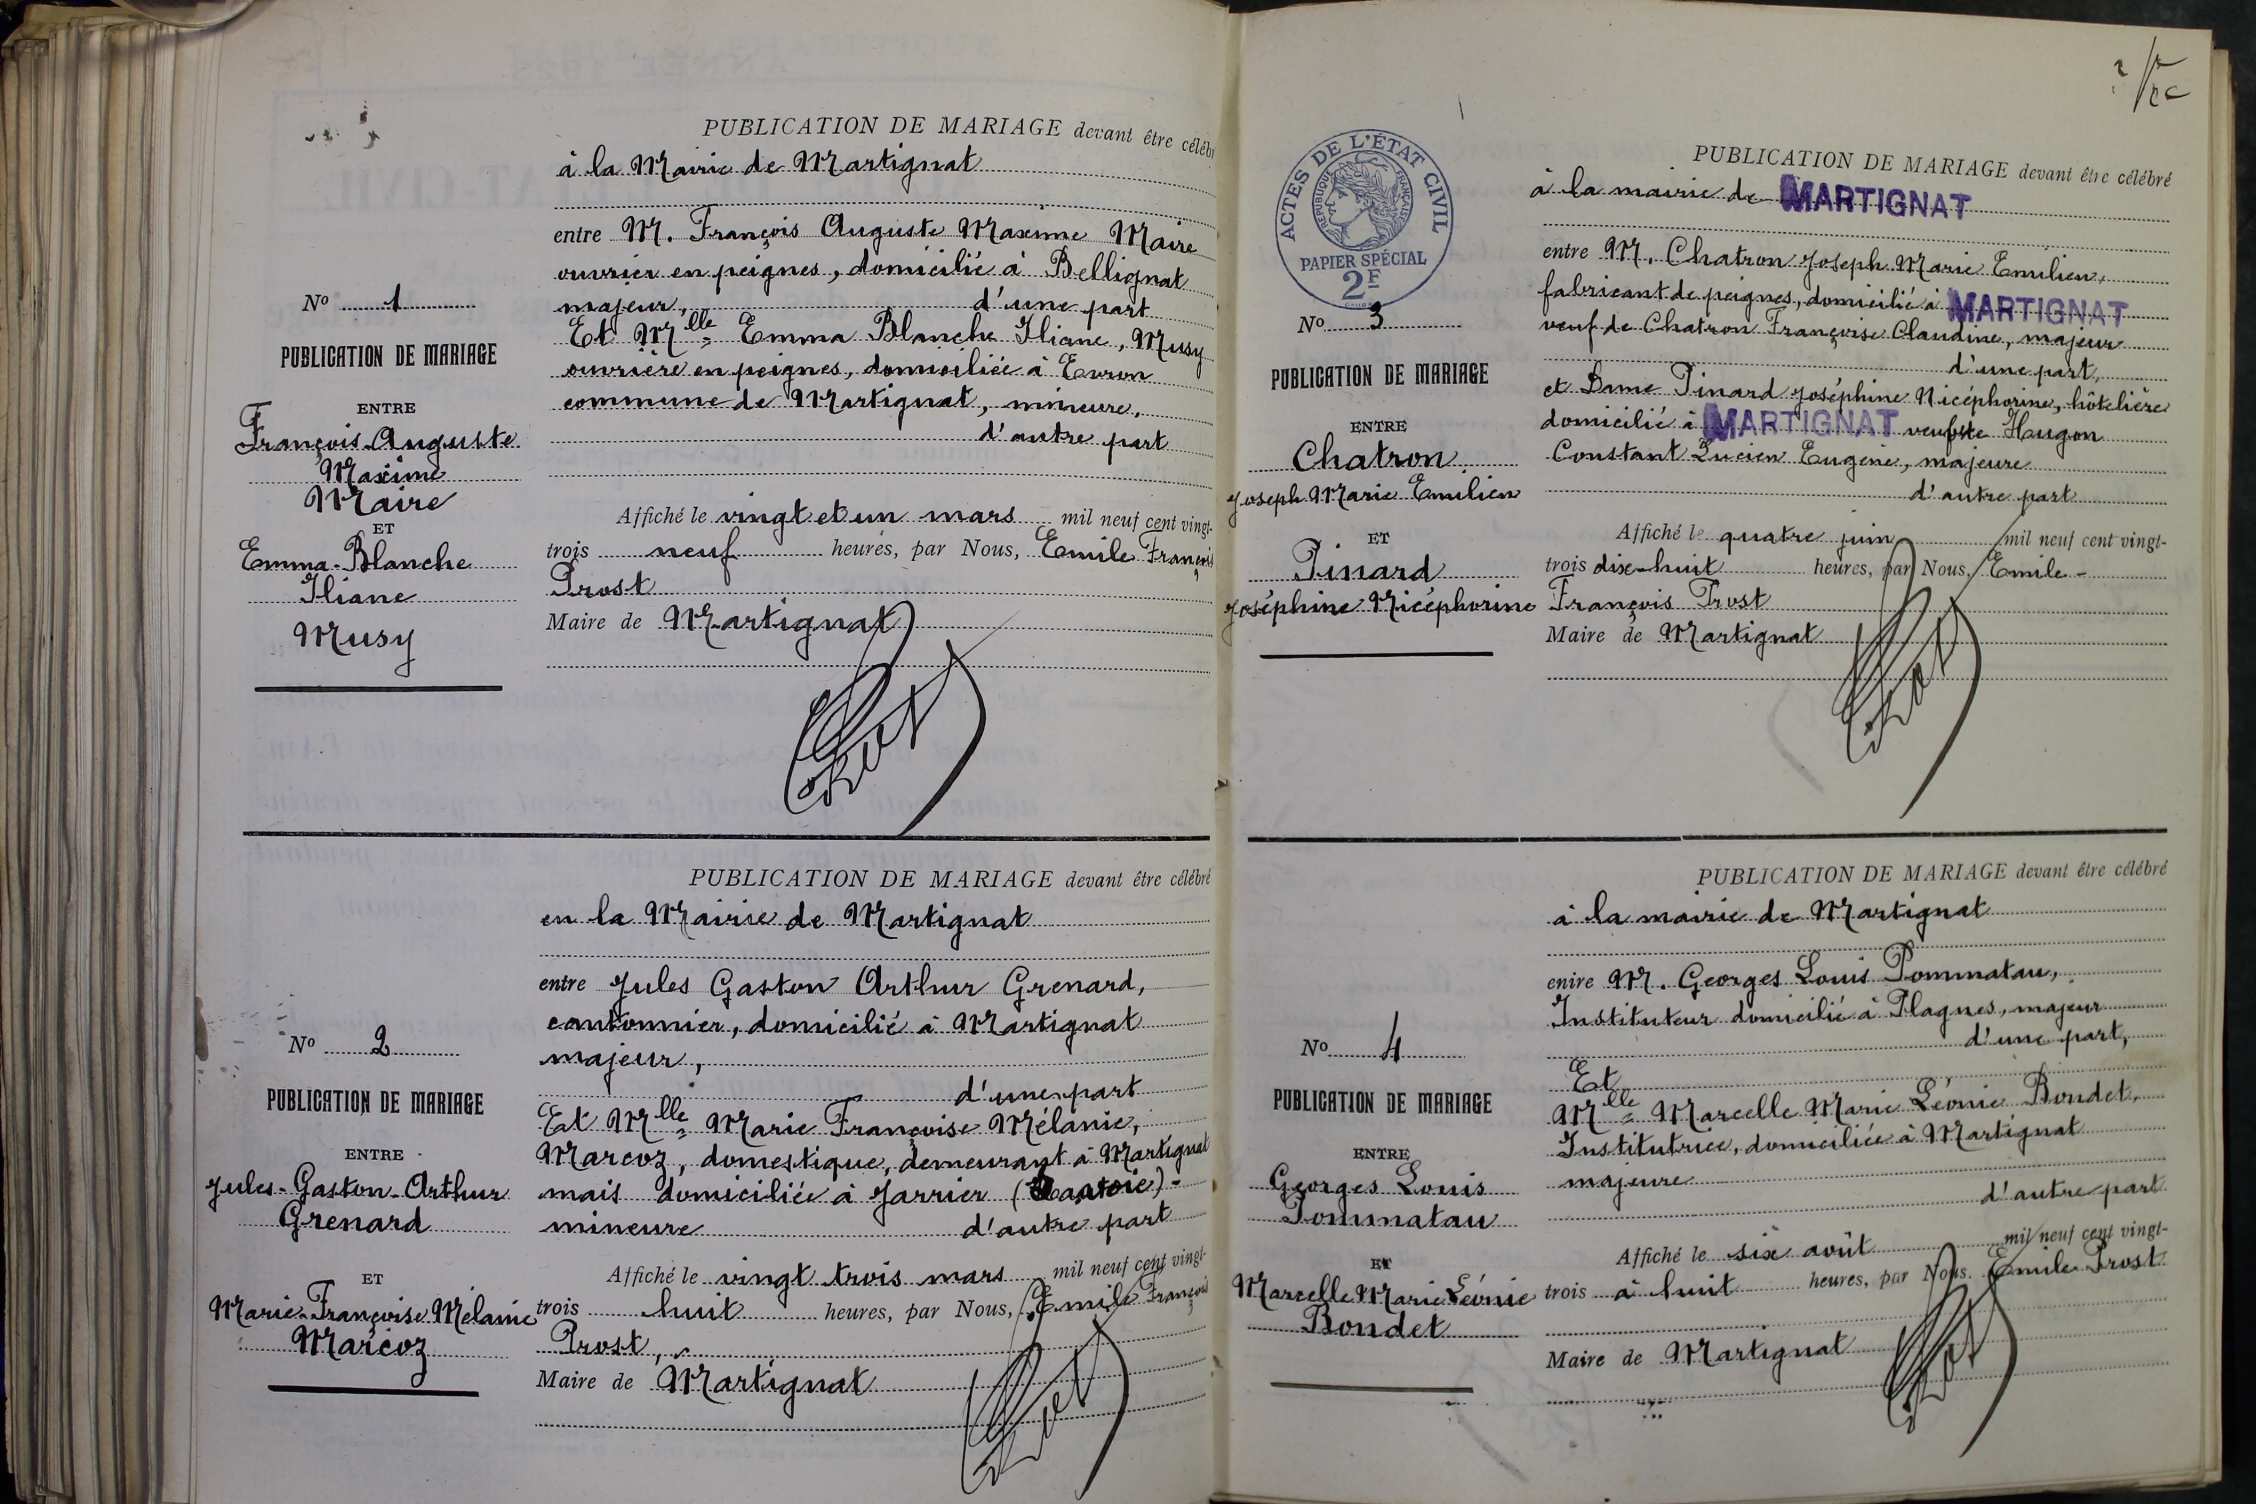 PUBLICATION DE MARIAGE devant être célébr
à la Mairie de Martignat
entre M. François Auguste Maxime Maire
ouvrier en peignes, domicilié à Bellignat
majeur, d'une part
Et Mlle Emma Blanche Iliane, Musy
ouvrière en peignes, domiciliée à Evron
commune de Martignat, mineure,
d'autre part
No 1
PUBLICATION DE MARIAGE
ENTRE
François-Auguste
Maxime
Maire
ET
Emma-Blanche
Iliane
Musy
Affiché le vingt et un mars mil neuf cent vingt-
trois neuf heures, par Nous, Emile François
Prost
Maire de Martignat
Prost
PUBLICATION DE MARIAGE devant être célébré
en la Mairie de Martignat
entre Jules Gaston Arthur Grenard,
cantonnier, domicilié à Martignat
majeur,
d'une part
Et Mlle Marie Françoise Mélanie,
Marcoz, domestique, demeurant à Martignat
mais domiciliée à Jarrier (Savoie)-
mineure d'autre part
No 2
PUBLICATION DE MARIAGE
ENTRE
Jules-Gaston-Arthur
Grenard
ET
Marie-Françoise Mélanie
Marcoz
Affiché le vingt trois mars mil neuf cent vingt-
trois huit heures, par Nous, Emile François
Prost,
Maire de Martignat
Prost
ACTES DE L'ÉTAT CIVIL
RÉPUBLIQUE FRANÇAISE
PAPIER SPÉCIAL
2F
PUBLICATION DE MARIAGE devant être célébré
à la mairie de MARTIGNAT
entre M. Chatron Joseph Marie Emilien,
fabricant de peignes, domicilié à MARTIGNAT
veuf de Chatron Françoise Claudine, majeur
d'une part,
et Dame Pinard Joséphine Nicéphorine, hôtelière
domicilié à MARTIGNAT veuve de Hugon
Constant Lucien Eugène, majeure
d'autre part
No 3
PUBLICATION DE MARIAGE
ENTRE
Chatron
Joseph Marie Emilien
ET
Pinard
Joséphine Nicéphorine
Affiché le quatre juin mil neuf cent vingt-
trois dix-huit heures, par Nous, Emile-
François Prost
Maire de Martignat
Prost
PUBLICATION DE MARIAGE devant être célébré
à la mairie de Martignat
entre M. Georges Louis Pommatau,
Instituteur domicilié à Plagnes, majeur
d'une part,
Et
Mlle Marcelle Marie Léonie Bondet,
Institutrice, domiciliée à Martignat
majeure
d'autre part
No 4
PUBLICATION DE MARIAGE
ENTRE
Georges Louis
Pommatau
ET
Marcelle Marie Léonie
Bondet
Affiché le six août mil neuf cent vingt-
trois à huit heures, par Nous. Emile Prost
Maire de Martignat
Prost